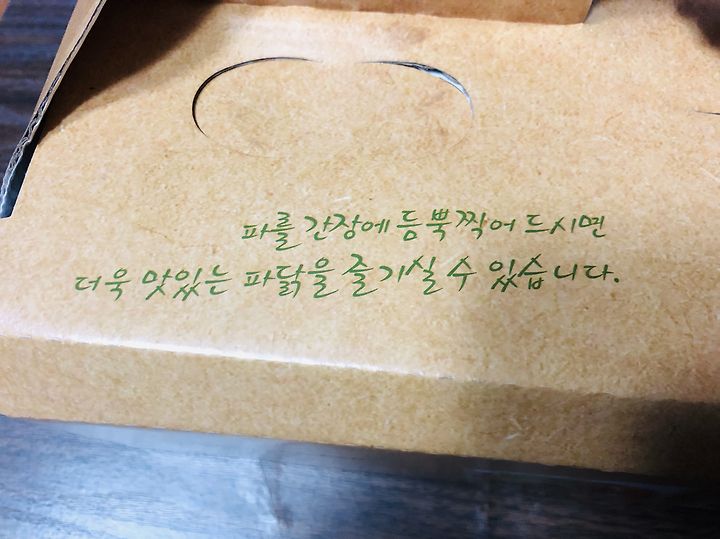 파를 간장에 듬뿍찍어 드시면
더욱 맛있는 파닭을 즐기실 수 있습니다.